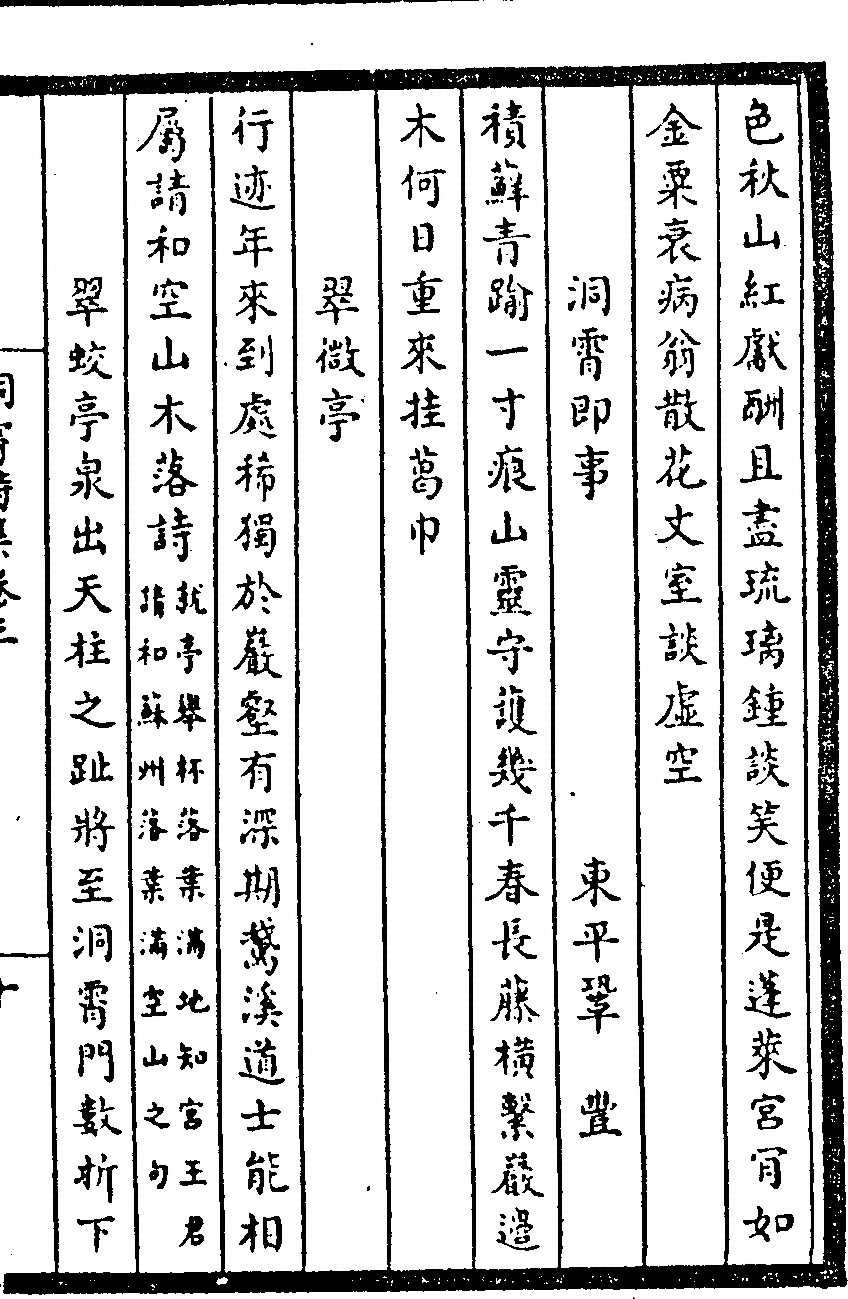 色秋山紅獻酬且盡琉璃鍾談笑便是蓬萊宮肎如
金粟衰病翁散花丈室談虛空
洞霄即事 東平鞏 豐
積蘚青踰一寸痕山靈守護幾千春長藤橫繫巖邉
木何日重來挂葛巾
翠微亭
行迹年來到處稀獨於巖壑有深期鵞溪道士能相
屬請和空山木落詩就亭舉杯落葉滿地知宮王君
請和蘇州落葉滿空山之句
翠蛟亭泉出天柱之趾將至洞霄門數折下
洞霄詩集卷三
十